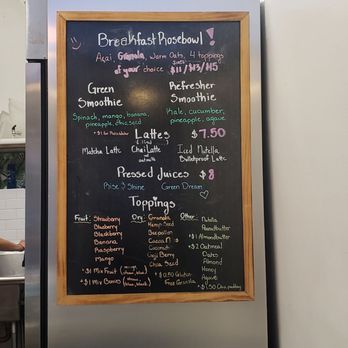 Breakfast Rosebowl!
Açai, Granola, Warm Oats, 4 toppings
of your choice $11/$13/$15
Green Smoothie
Spinach, mango, banana,
pineapple, chia seed
Refresher Smoothie
Kale, cucumber,
pineapple, agave
Lattes $7.50
Matcha Latte
Chai Latte
Iced Nutella
Bulletproof Latte
Pressed Juices $8
Rise & Shine
Green Dream
Toppings
Fruit:
Strawberry
Blueberry
Blackberry
Banana
Raspberry
Mango
+$1 Mix Fruit
+$1 Mix Berries
Dry:
Granola
Hemp Seed
Bee pollen
Cacao
Coconut
Goji Berry
Chia Seed
+$0.50 Gluten
Free Granola
Other:
Nutella
Peanutbutter
+$1 Almondbutter
+$2 Oatmeal
Dates
Almond
Honey
Agave
+$1.50 Chia pudding